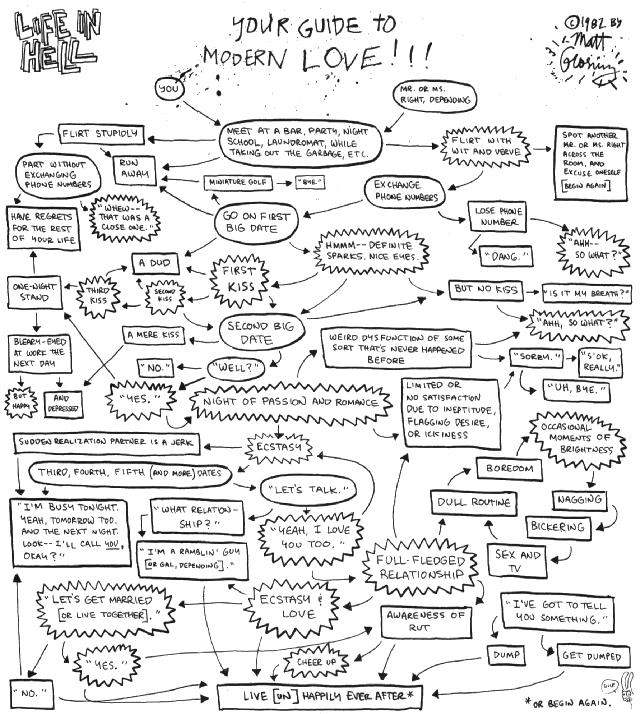 LIFE IN
HELL
YOUR GUIDE TO
MODERN LOVE!!!
©1982 BY
Matt
Groening
YOU
MR. OR MS.
RIGHT, DEPENDING
FLIRT STUPIDLY
MEET AT A BAR, PARTY, NIGHT
SCHOOL, LAUNDROMAT, WHILE
TAKING OUT THE GARBAGE, ETC.
FLIRT WITH
WIT AND VERVE
SPOT ANOTHER
MR. OR MS. RIGHT
ACROSS THE
ROOM, AND
EXCUSE ONESELF
[BEGIN AGAIN]
PART WITHOUT
EXCHANGING
PHONE NUMBERS
RUN
AWAY
MINIATURE GOLF
"BYE."
EXCHANGE
PHONE NUMBERS
HAVE REGRETS
FOR THE REST
OF YOUR LIFE
"WHEW--
THAT WAS A
CLOSE ONE."
GO ON FIRST
BIG DATE
LOSE PHONE
NUMBER
"DANG."
"AHH--
SO WHAT?"
A DUD
FIRST
KISS
HMMM-- DEFINITE
SPARKS. NICE EYES.
ONE-NIGHT
STAND
THIRD
KISS
SECOND
KISS
BUT NO KISS
"IS IT MY BREATH?"
"AHH, SO WHAT?"
A MERE KISS
SECOND BIG
DATE
WEIRD DYSFUNCTION OF SOME
SORT THAT'S NEVER HAPPENED
BEFORE
"SORRY."
"S'OK,
REALLY."
"UH, BYE."
BLEARY-EYED
AT WORK THE
NEXT DAY
"NO."
"WELL?"
BUT
HAPPY
AND
DEPRESSED
"YES."
NIGHT OF PASSION AND ROMANCE
LIMITED OR
NO SATISFACTION
DUE TO INEPTITUDE,
FLAGGING DESIRE,
OR ICKINESS
OCCASIONAL
MOMENTS OF
BRIGHTNESS
SUDDEN REALIZATION PARTNER IS A JERK
ECSTASY
THIRD, FOURTH, FIFTH (AND MORE) DATES
"LET'S TALK."
BOREDOM
DULL ROUTINE
NAGGING
BICKERING
SEX AND
TV
"I'M BUSY TONIGHT.
YEAH, TOMORROW TOO.
AND THE NEXT NIGHT.
LOOK-- I'LL CALL YOU,
OKAY?"
"WHAT RELATION-
SHIP?"
"YEAH, I LOVE
YOU TOO."
"I'M A RAMBLIN' GUY
[OR GAL, DEPENDING]."
FULL-FLEDGED
RELATIONSHIP
"LET'S GET MARRIED
[OR LIVE TOGETHER]."
ECSTASY &
LOVE
AWARENESS OF
RUT
"I'VE GOT TO TELL
YOU SOMETHING."
"YES."
CHEER UP
DUMP
GET DUMPED
"NO."
LIVE [UN] HAPPILY EVER AFTER*
*OR BEGIN AGAIN.